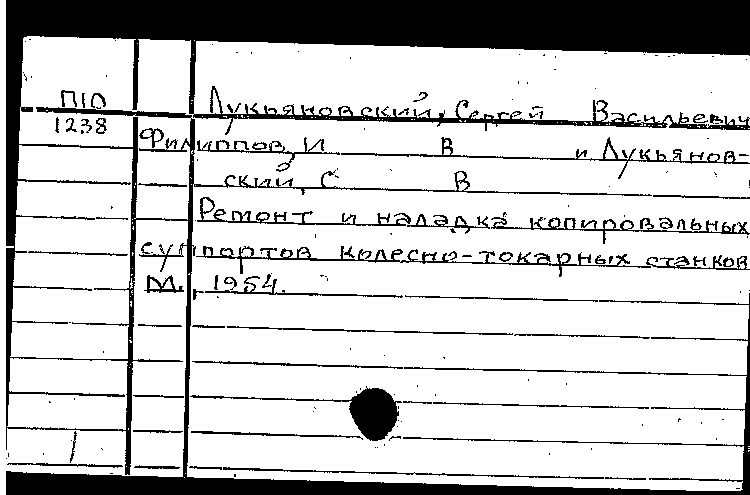 П10
1238
Лукьяновский, Сергей Васильевич
Филиппов, И В и Лукьянов-
ский, С В
Ремонт и наладка копировальных
суппортов колесно-токарных станков
М., 1954.